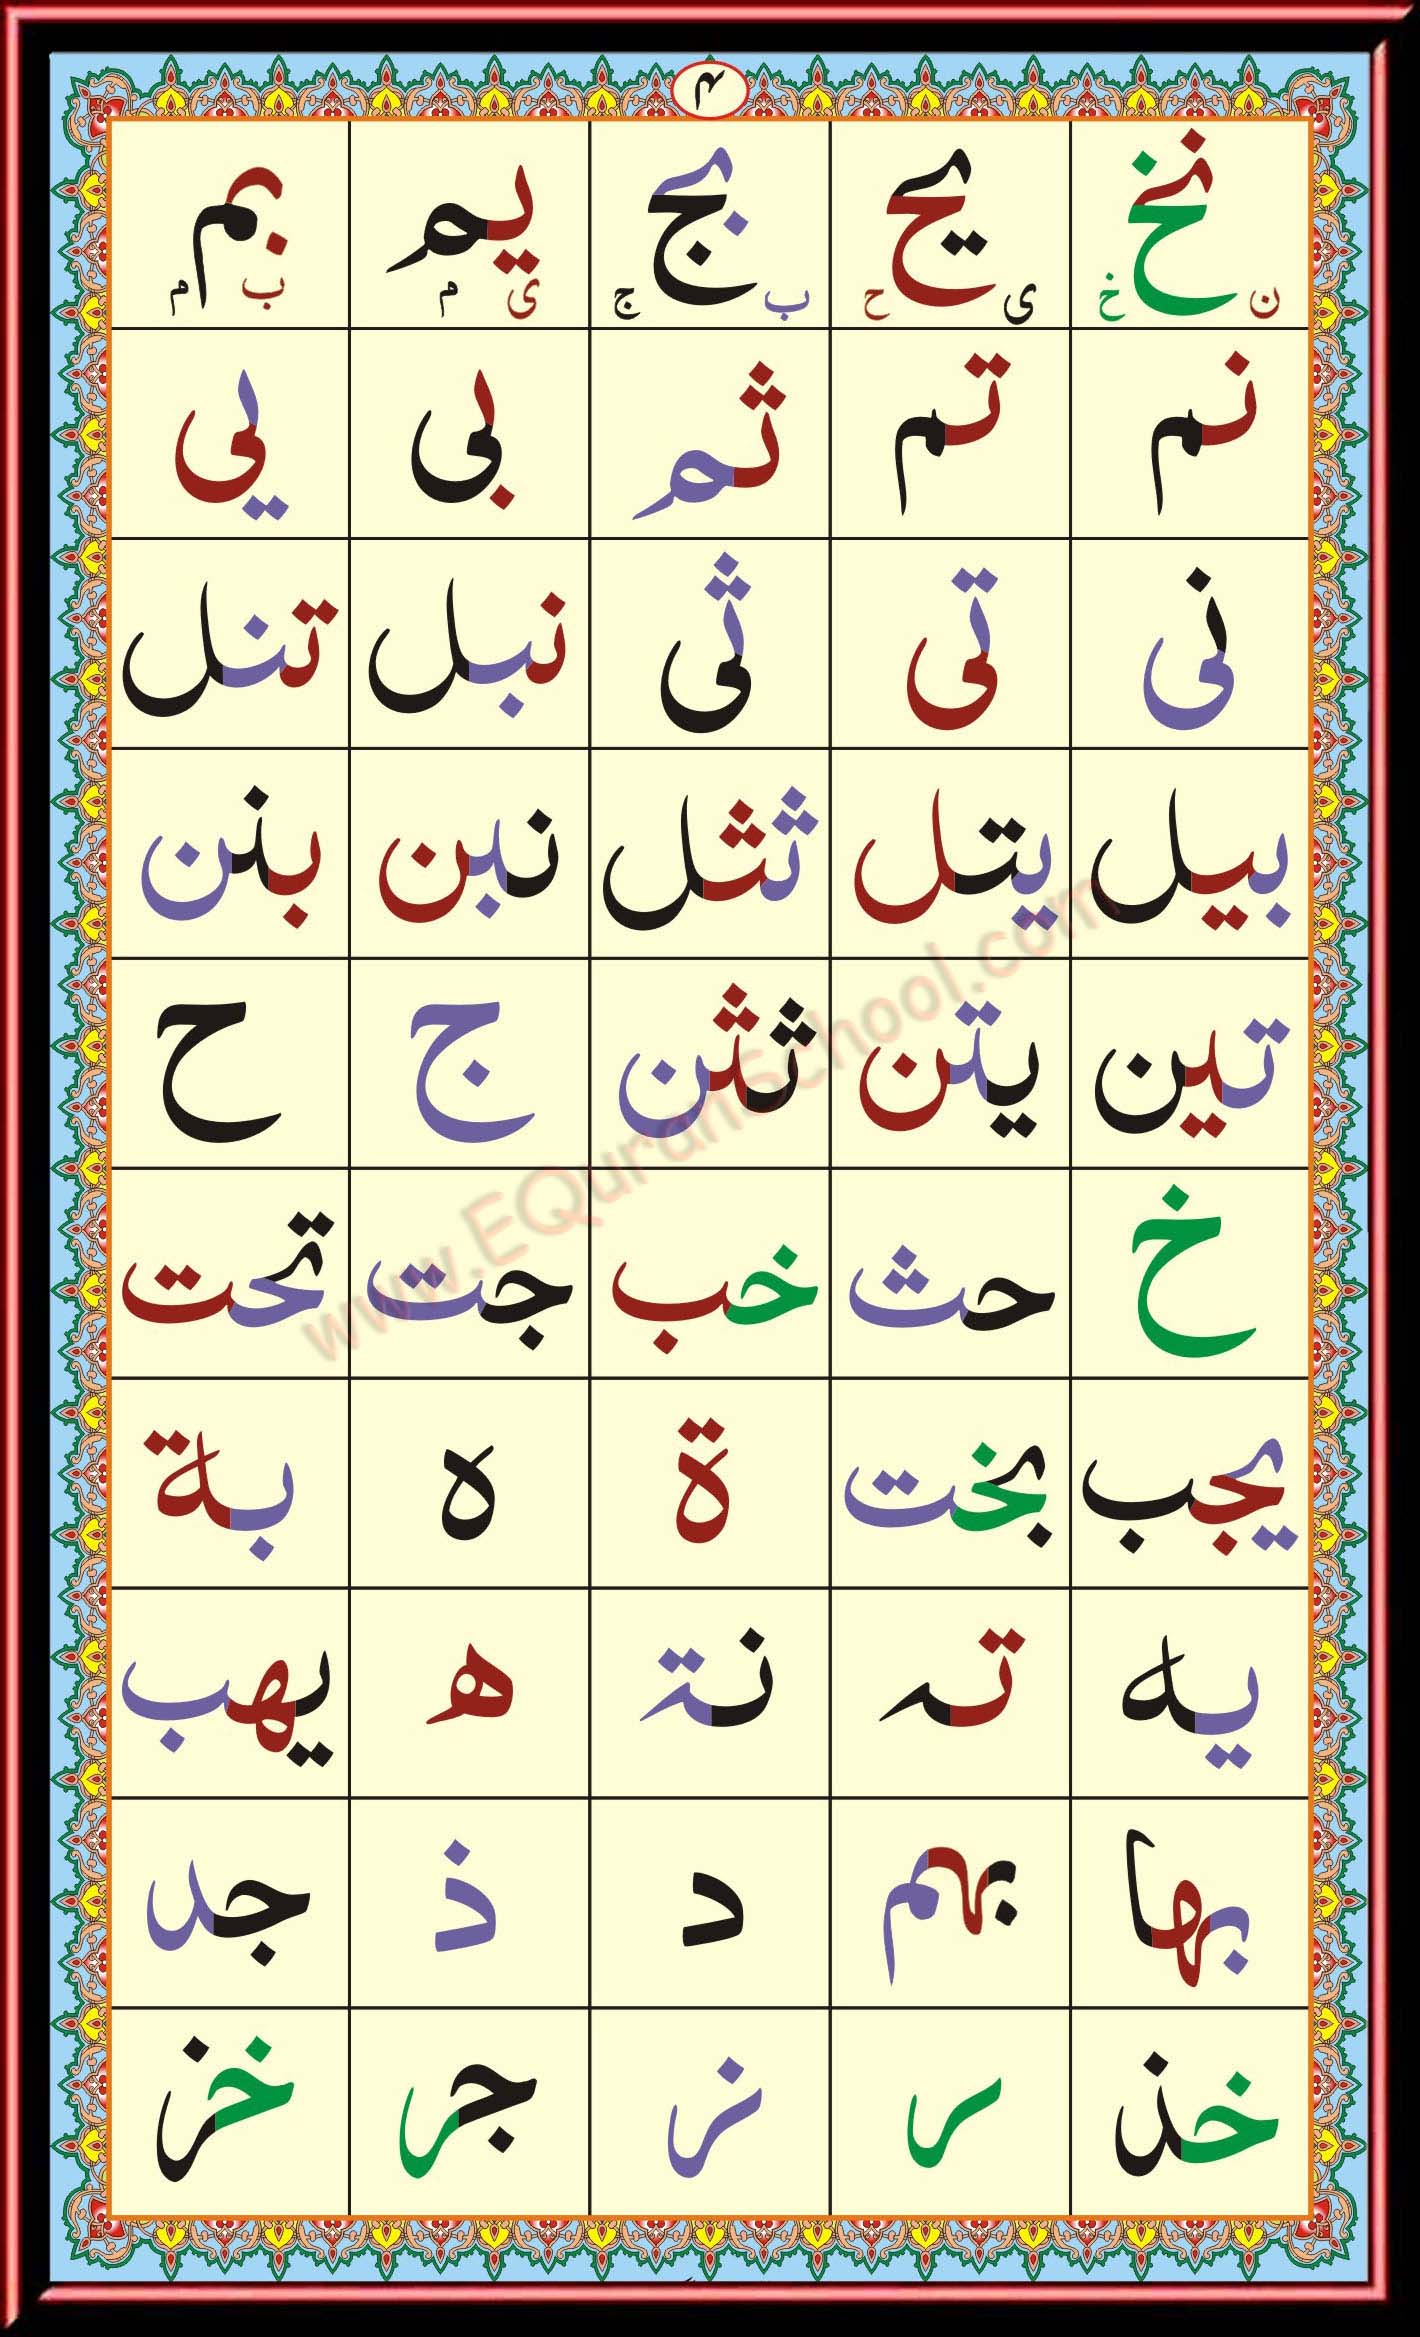 ۴
نخ یح بج یم بم
ن خ ی ح ب ج ی م ب م
نم تم ثم بی یی
نی تی ثی نبل تنل
بیل یتل ثثل نبن بنن
تین یتن ثثن ج ح
خ حث خب جت تحت
یجب بخت ة ه بة
یه ته نة ھ یهب
بها بهم د ذ جد
خذ ر ز جر خز
www.EQuranSchool.com